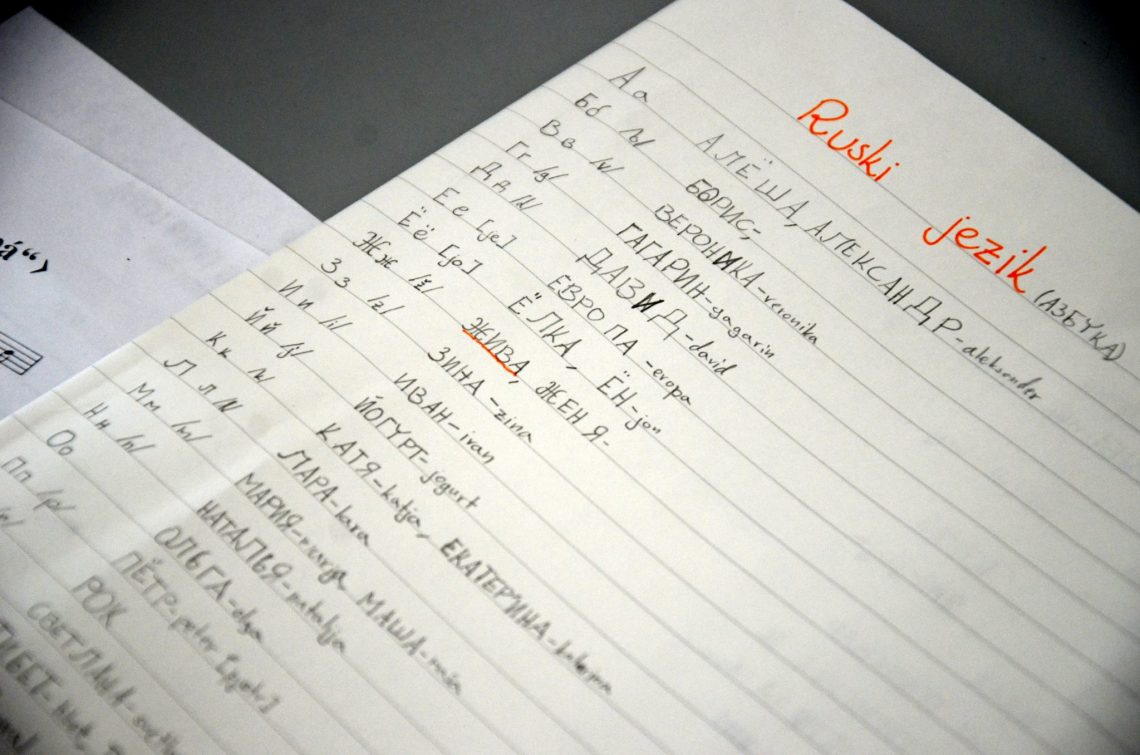 Ruski jezik (АЗБУКА)
Аа АЛЁША, АЛЕКСАНДР - aleksander
Бб /b/ БОРИС,
Вв /v/ ВЕРОНИКА - veronika
Гг /g/ ГАГАРИН - gagarin
Дд /d/ ДАВИД - david
Ее [je] ЕВРОПА - evropa
Ёё [jo] ЁЛКА, ЁН - jon
Жж /ž/ ЖИВА, ЖЕНЯ -
Зз /z/ ЗИНА - zina
Ии /i/ ИВАН - ivan
Йй /j/ ЙОГУРТ - jogurt
Кк /k/ КАТЯ - katja, ЕКАТЕРИНА -
Лл /l/ ЛАРА -
Мм /m/ МАРИЯ - МАША -
Нн /n/ НАТАЛЬЯ - natalja
Оо ОЛЬГА - olga
Пп /p/ ПЁТР - peter
РОК
СВЕТЛАНА -